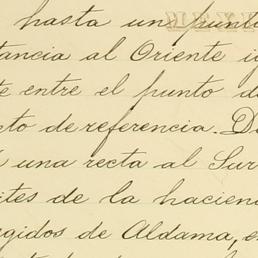 hasta un punto
tancia al Oriente i
te entre el punto d
cto de referencia. De
una recta al Sur
ites de la hacien
gidos de Aldama, e